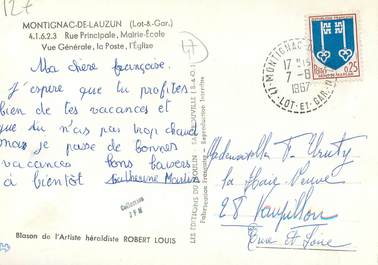 127
MONTIGNAC-DE-LAUZUN (Lot-&-Gar.)
4.1.6.2.3 Rue Principale, Mairie-École
Vue Générale, la Poste, l'Église
47
Ma chère françoise.
J'espère que tu profites
bien de tes vacances et
que du n'as pas trop chaud
moi je passe de bonnes
vacances bons baisers
à bientôt Catherine Martin
Collection
Blason de l'Artiste héraldiste ROBERT LOUIS
LES ÉDITIONS DU MOULIN
Fabrication Française - Reproduction Interdite
17 H15
7-8
1967
LOT-ET-GAR.
0,25
Mademoiselle F.
la Haie Neuve
28 Vaupillon
Eure et Loire